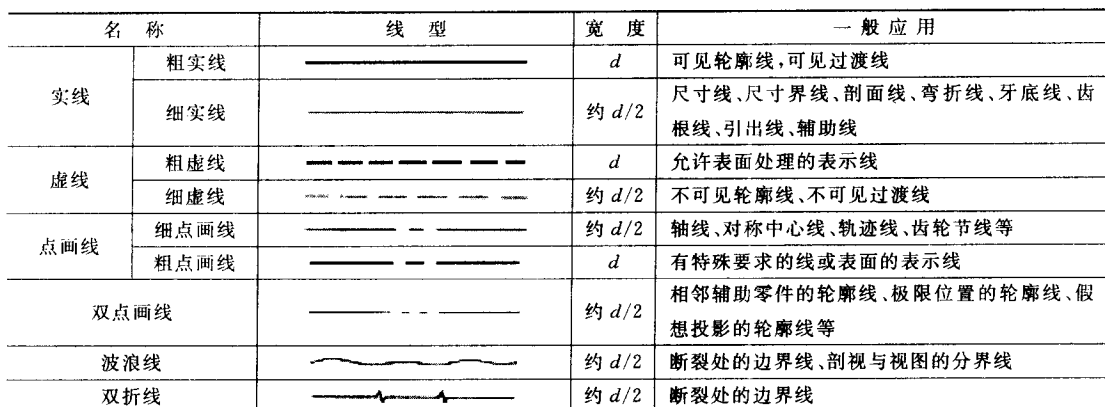 名 称 线 型 宽 度 一 般 应 用
实线 粗实线 d 可见轮廓线,可见过渡线
细实线 约 d/2 尺寸线、尺寸界线、剖面线、弯折线、牙底线、齿
根线、引出线、辅助线
虚线 粗虚线 d 允许表面处理的表示线
细虚线 约 d/2 不可见轮廓线、不可见过渡线
点画线 细点画线 约 d/2 轴线、对称中心线、轨迹线、齿轮节线等
粗点画线 d 有特殊要求的线或表面的表示线
双点画线 约 d/2 相邻辅助零件的轮廓线、极限位置的轮廓线、假
想投影的轮廓线等
波浪线 约 d/2 断裂处的边界线、剖视与视图的分界线
双折线 约 d/2 断裂处的边界线